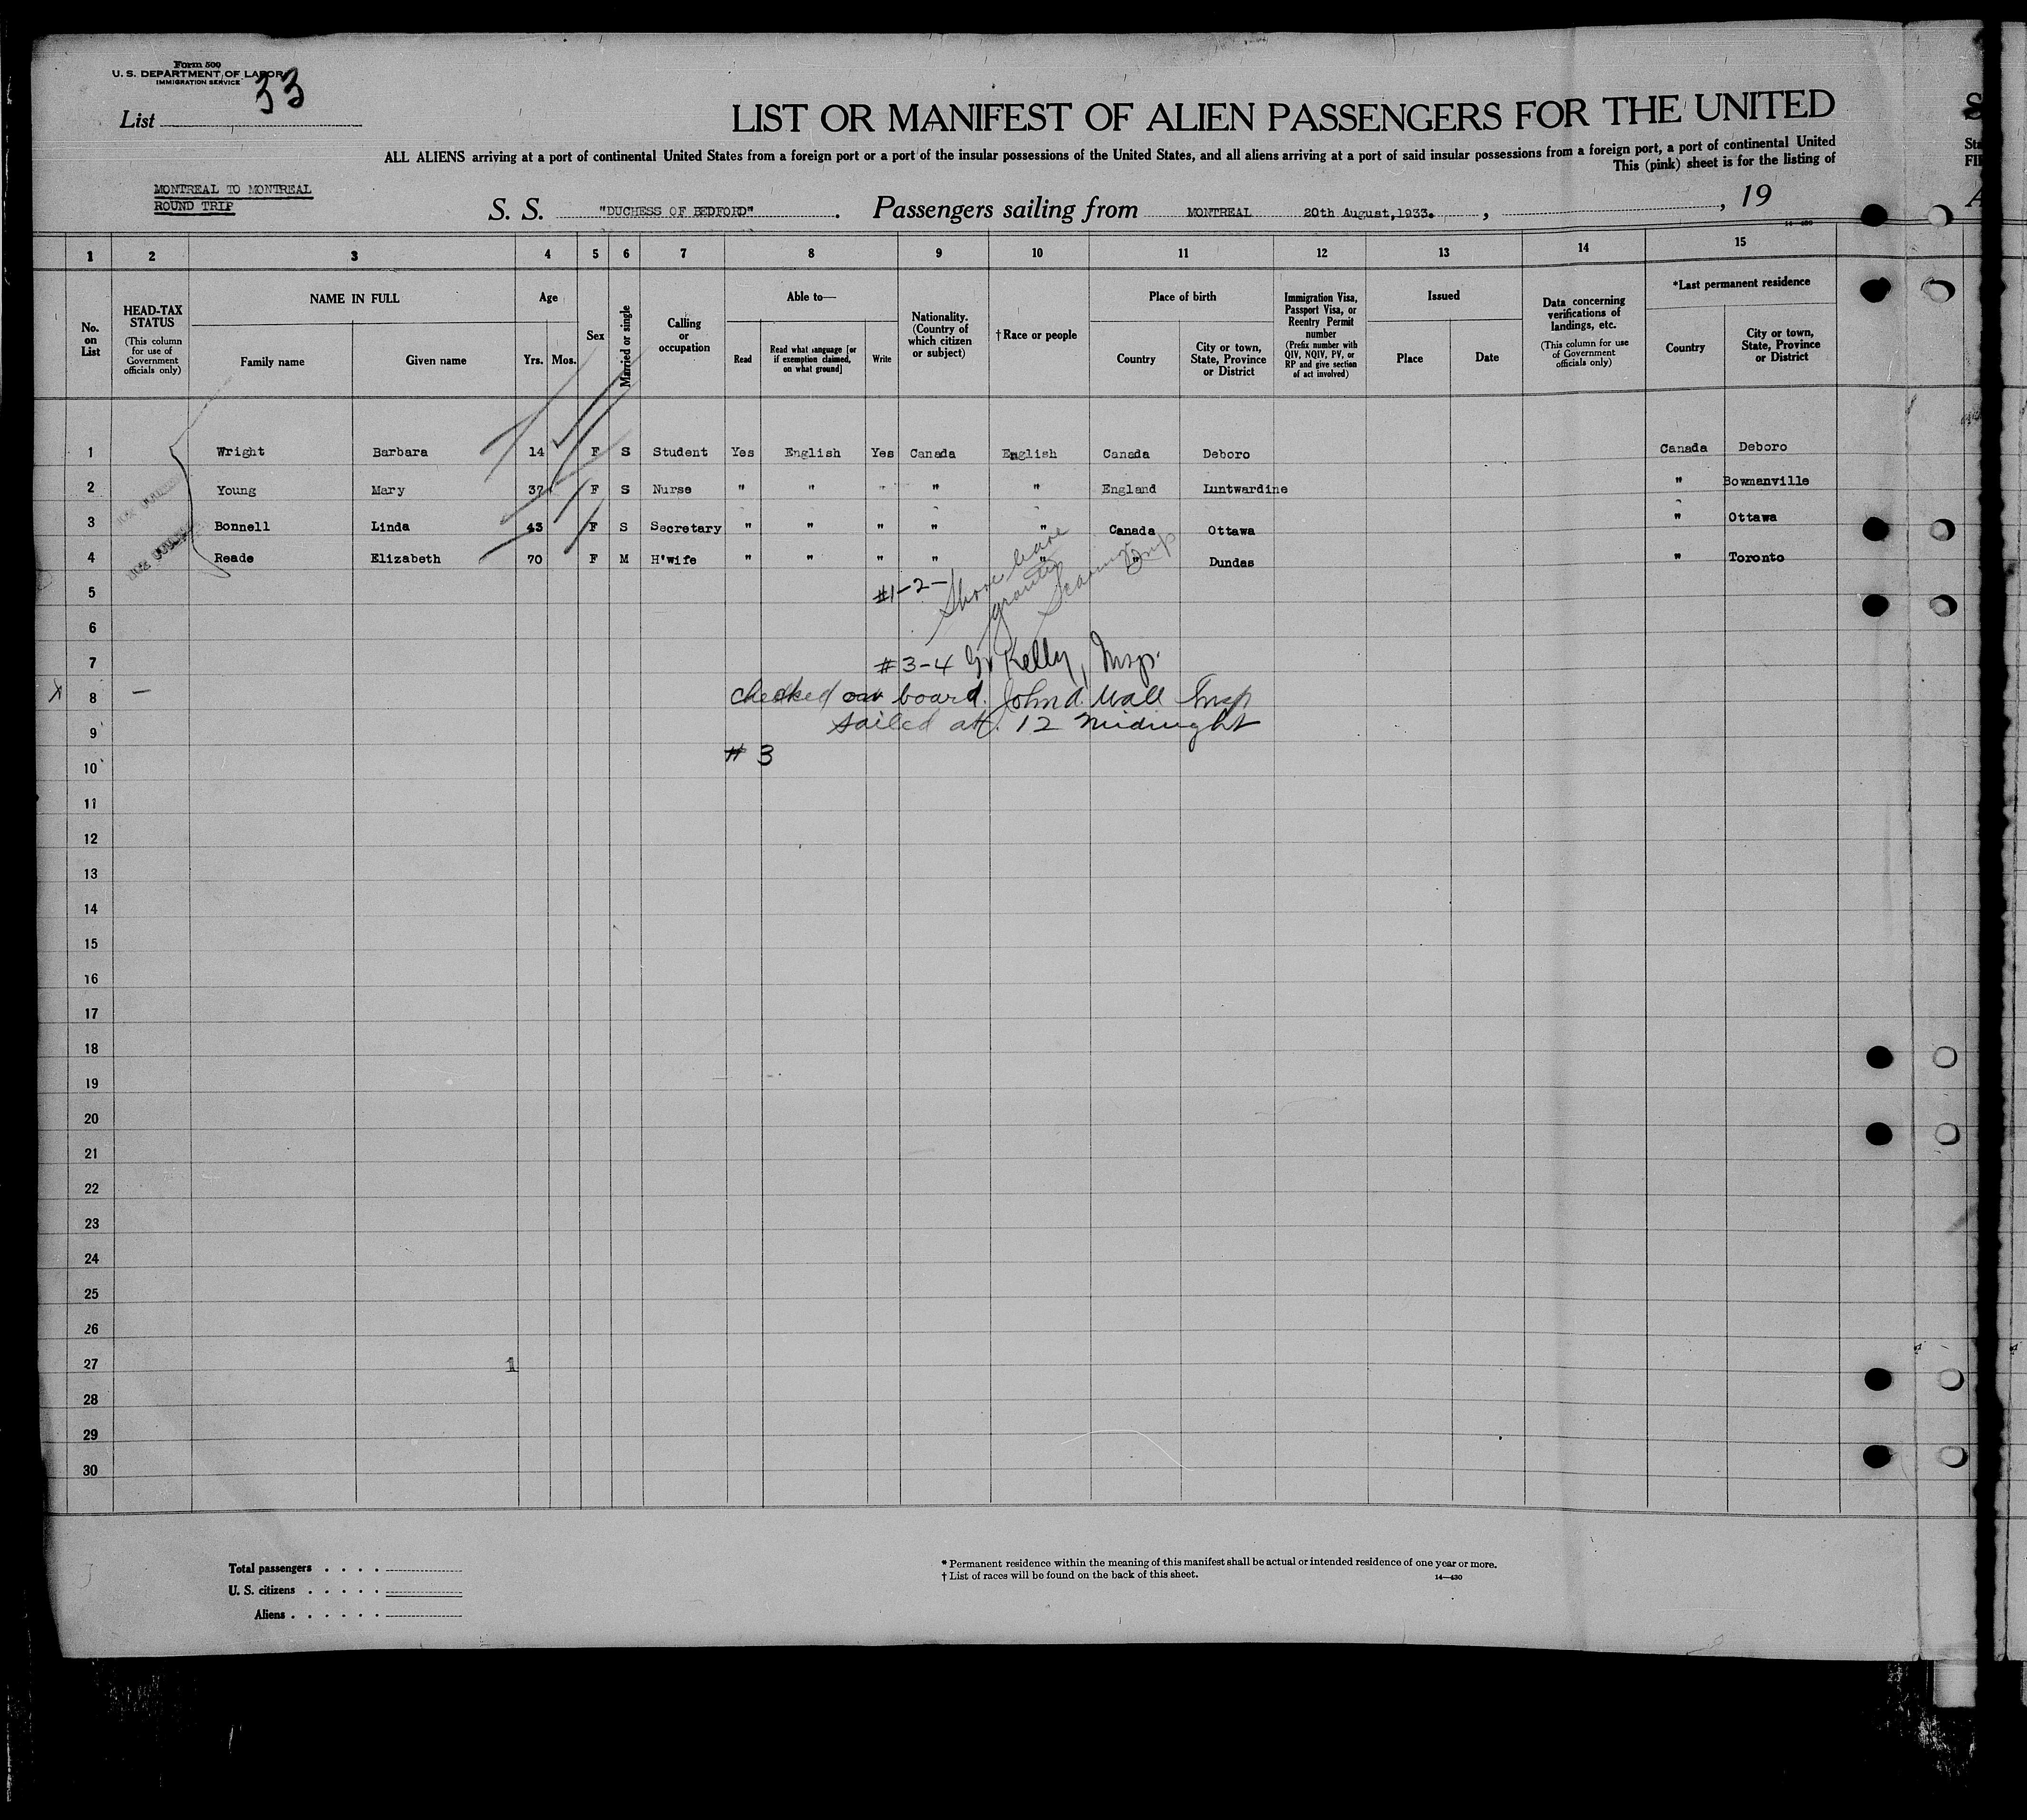 Form 500
U. S. DEPARTMENT OF LABOR
IMMIGRATION SERVICE
List 33
LIST OR MANIFEST OF ALIEN PASSENGERS FOR THE UNITED
ALL ALIENS arriving at a port of continental United States from a foreign port or a port of the insular possessions of the United States, and all aliens arriving at a port of said insular possessions from a foreign port, a port of continental United
This (pink) sheet is for the listing of
MONTREAL TO MONTREAL
ROUND TRIP
S. S. "DUCHESS OF BEDFORD". Passengers sailing from MONTREAL 20th August, 1933. , , 19
1 2 3 4 5 6 7 8 9 10 11 12 13 14 15
No. on List
HEAD-TAX STATUS
(This column for use of Government officials only)
NAME IN FULL
Family name
Given name
Age
Yrs. Mos.
Sex
Married or single
Calling or occupation
Able to—
Read
Read what language [or if exemption claimed, on what ground]
Write
Nationality. (Country of which citizen or subject)
†Race or people
Place of birth
Country
City or town, State, Province or District
Immigration Visa, Passport Visa, or Reentry Permit number
(Prefix number with QIV, NQIV, PV, or RP and give section of act involved)
Issued
Place
Date
Data concerning verifications of landings, etc.
(This column for use of Government officials only)
*Last permanent residence
Country
City or town, State, Province or District
1 Wright Barbara 14 F S Student Yes English Yes Canada English Canada Deboro Canada Deboro
2 Young Mary 37 F S Nurse " " " " " England Luntwardine " Bowmanville
3 Bonnell Linda 43 F S Secretary " " " " " Canada Ottawa " Ottawa
4 Reade Elizabeth 70 F M H'wife " " " " " " Dundas " Toronto
5 #1-2- Shore leave
granted
Insp
6
7 #3-4 Kelly, Insp.
X 8 — checked on board. John A. Wall Insp
9 sailed at. 12 midnight
10 # 3
11
12
13
14
15
16
17
18
19
20
21
22
23
24
25
26
27 1
28
29
30
Total passengers . . . .
U. S. citizens . . . . .
Aliens . . . . . .
* Permanent residence within the meaning of this manifest shall be actual or intended residence of one year or more.
† List of races will be found on the back of this sheet.
14—430